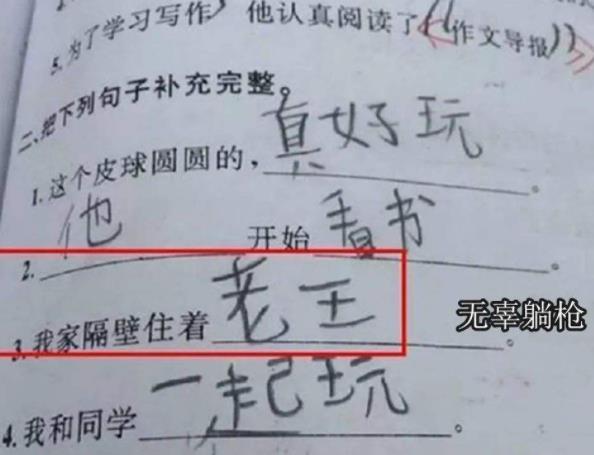 5.为了学习写作，他认真阅读了《作文导报》
二、把下列句子补充完整。
1.这个皮球圆圆的，真好玩。
2.他开始看书。
3.我家隔壁住着老王。
无辜躺枪
4.我和同学一起玩。